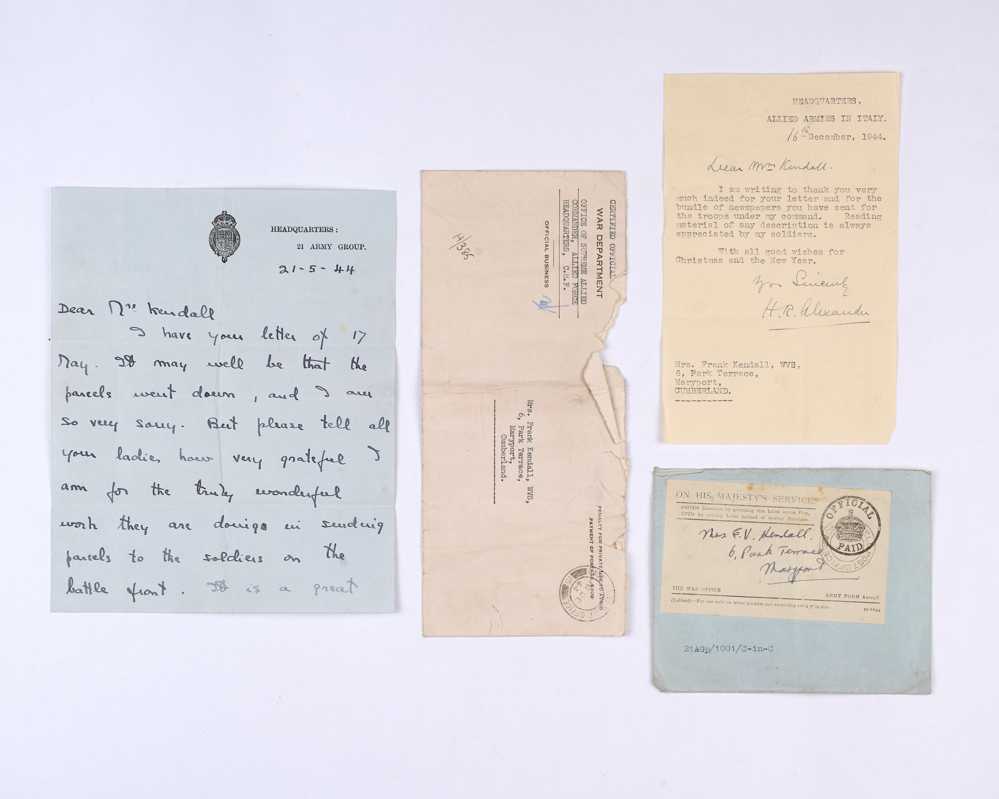 HEADQUARTERS:
21 ARMY GROUP.
21-5-44
Dear Mrs Kendall
I have your letter of 17
May. It may well be that the
parcels went down, and I am
so very sorry. But please tell all
your ladies how very grateful I
am for the truly wonderful
work they are doing in sending
parcels to the soldiers on the
battle front. It is a great
CERTIFIED OFFICIAL
WAR DEPARTMENT
OFFICE OF SUPREME ALLIED
COMMANDER, ALLIED FORCE
HEADQUARTERS, C.M.F.
OFFICIAL BUSINESS
Mrs. Frank Kendall, WVS,
6, Park Terrace,
Maryport,
Cumberland.
PENALTY FOR PRIVATE USE TO AVOID
PAYMENT OF POSTAGE
HEADQUARTERS,
ALLIED ARMIES IN ITALY.
16th December, 1944.
Dear Mrs Kendall.
I am writing to thank you very
much indeed for your letter and for the
bundle of newspapers you have sent for
the troops under my command. Reading
material of any description is always
appreciated by my soldiers.
With all good wishes for
Christmas and the New Year.
Yrs Sincerely
H.R. Alexander
Mrs. Frank Kendall, WVS,
6, Park Terrace,
Maryport,
CUMBERLAND.
ON HIS MAJESTY'S SERVICE
OFFICIAL
PAID
Mrs F.V. Kendall.
6, Park Terrace,
Maryport
THE WAR OFFICE
ARMY FORM
21AGp/1001/C-in-C